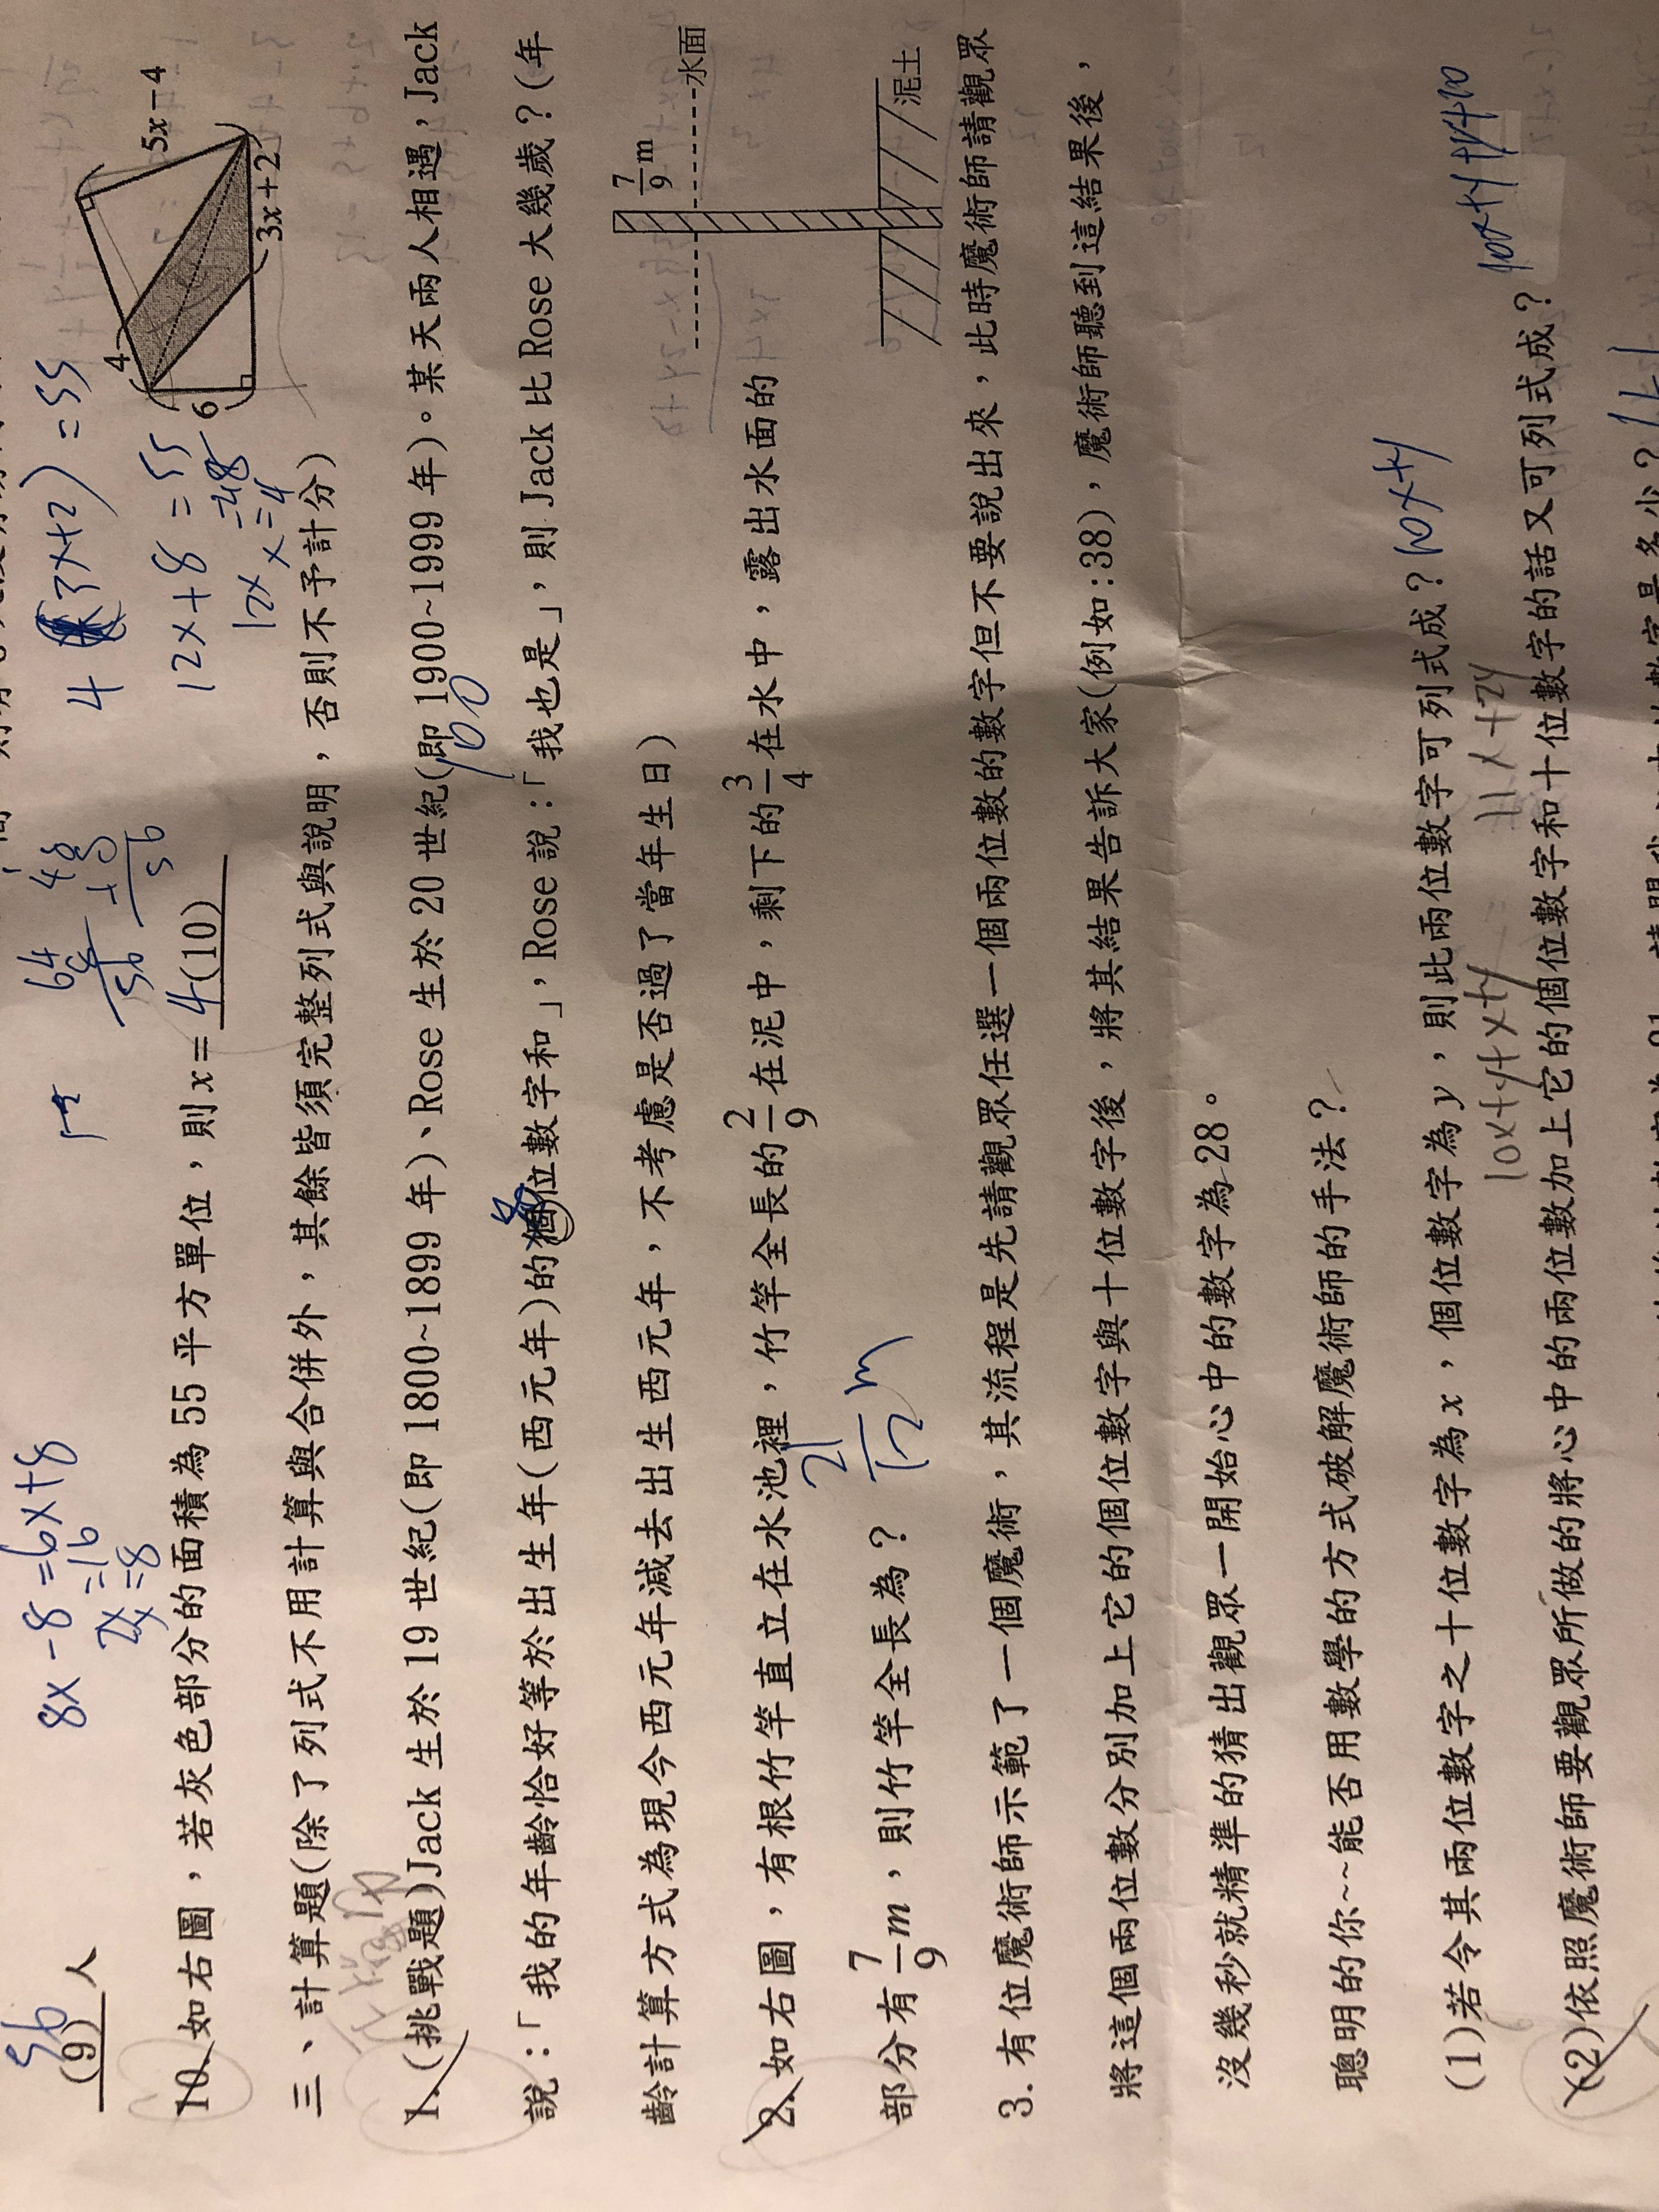 4(3x+2)=55
12x+8=55
12x=48
x=4
8x-8=6x+8
2x=16
x=8
64
56
48
+8
56
56
(9) 人
4
5x-4
6
3x+2
10.如右圖，若灰色部分的面積為 55 平方單位，則 x= 4(10)
三、計算題(除了列式不用計算與合併外，其餘皆須完整列式與說明，否則不予計分)
1.(挑戰題)Jack 生於 19 世紀(即 1800~1899 年)、Rose 生於 20 世紀(即 1900~1999 年)。某天兩人相遇，Jack
說：「我的年齡恰好等於出生年(西元年)的個位數字和」，Rose 說：「我也是」，則 Jack 比 Rose 大幾歲？(年
齡計算方式為現今西元年減去出生西元年，不考慮是否過了當年生日)
2.如右圖，有根竹竿直立在水池裡，竹竿全長的 2/9 在泥中，剩下的 3/4 在水中，露出水面的
部分有 7/9 m，則竹竿全長為？
21/12 m
7/9 m
水面
泥土
3.有位魔術師示範了一個魔術，其流程是先請觀眾任選一個兩位數的數字但不要說出來，此時魔術師請觀眾
將這個兩位數分別加上它的個位數字與十位數字後，將其結果告訴大家(例如:38)，魔術師聽到這結果後，
沒幾秒就精準的猜出觀眾一開始心中的數字為 28。
聰明的你~~能否用數學的方式破解魔術師的手法？
(1)若令其兩位數字之十位數字為 x，個位數字為 y，則此兩位數字可列式成？10x+y
10x+y+x+y
11x+2y
(2)依照魔術師要觀眾所做的將心中的兩位數加上它的個位數字和十位數字的話又可列式成？